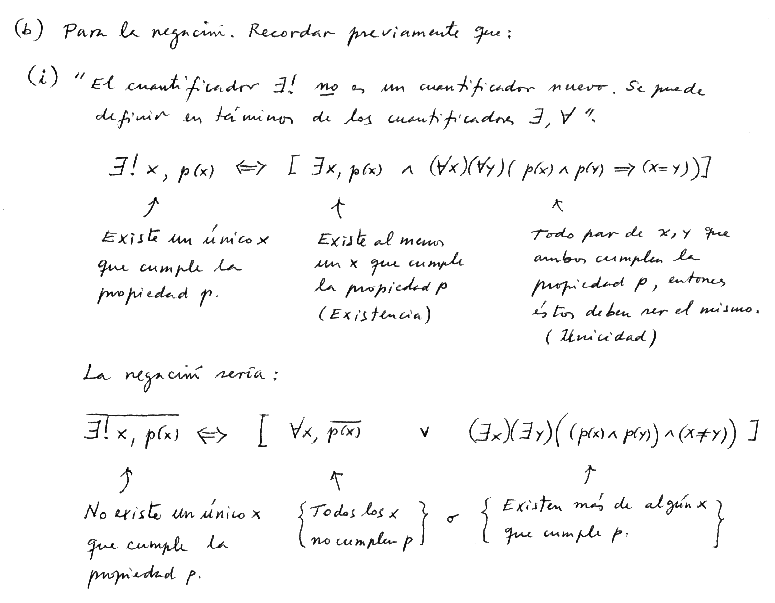 (b) Para la negación. Recordar previamente que:
(i) "El cuantificador ∃! no es un cuantificador nuevo. Se puede
definir en términos de los cuantificadores ∃, ∀".
∃! x, p(x) ⇔ [ ∃x, p(x) ∧ (∀x)(∀y)( p(x) ∧ p(y) ⇒ (x=y))]
↑ ↑ ↑
Existe un único x
que cumple la
propiedad p.
Existe al menos
un x que cumple
la propiedad p
(Existencia)
Todo par de x, y que
ambos cumplen la
propiedad p, entonces
éstos deben ser el mismo.
(Unicidad)
La negación sería:
\overline{∃! x, p(x)} ⇔ [ ∀x, \overline{p(x)} ∨ (∃x)(∃y)((p(x) ∧ p(y)) ∧ (x≠y)) ]
↑ ↑ ↑
No existe un único x
que cumple la
propiedad p.
{Todos los x
no cumplen p}
o
{Existen más de algún x
que cumple p.}